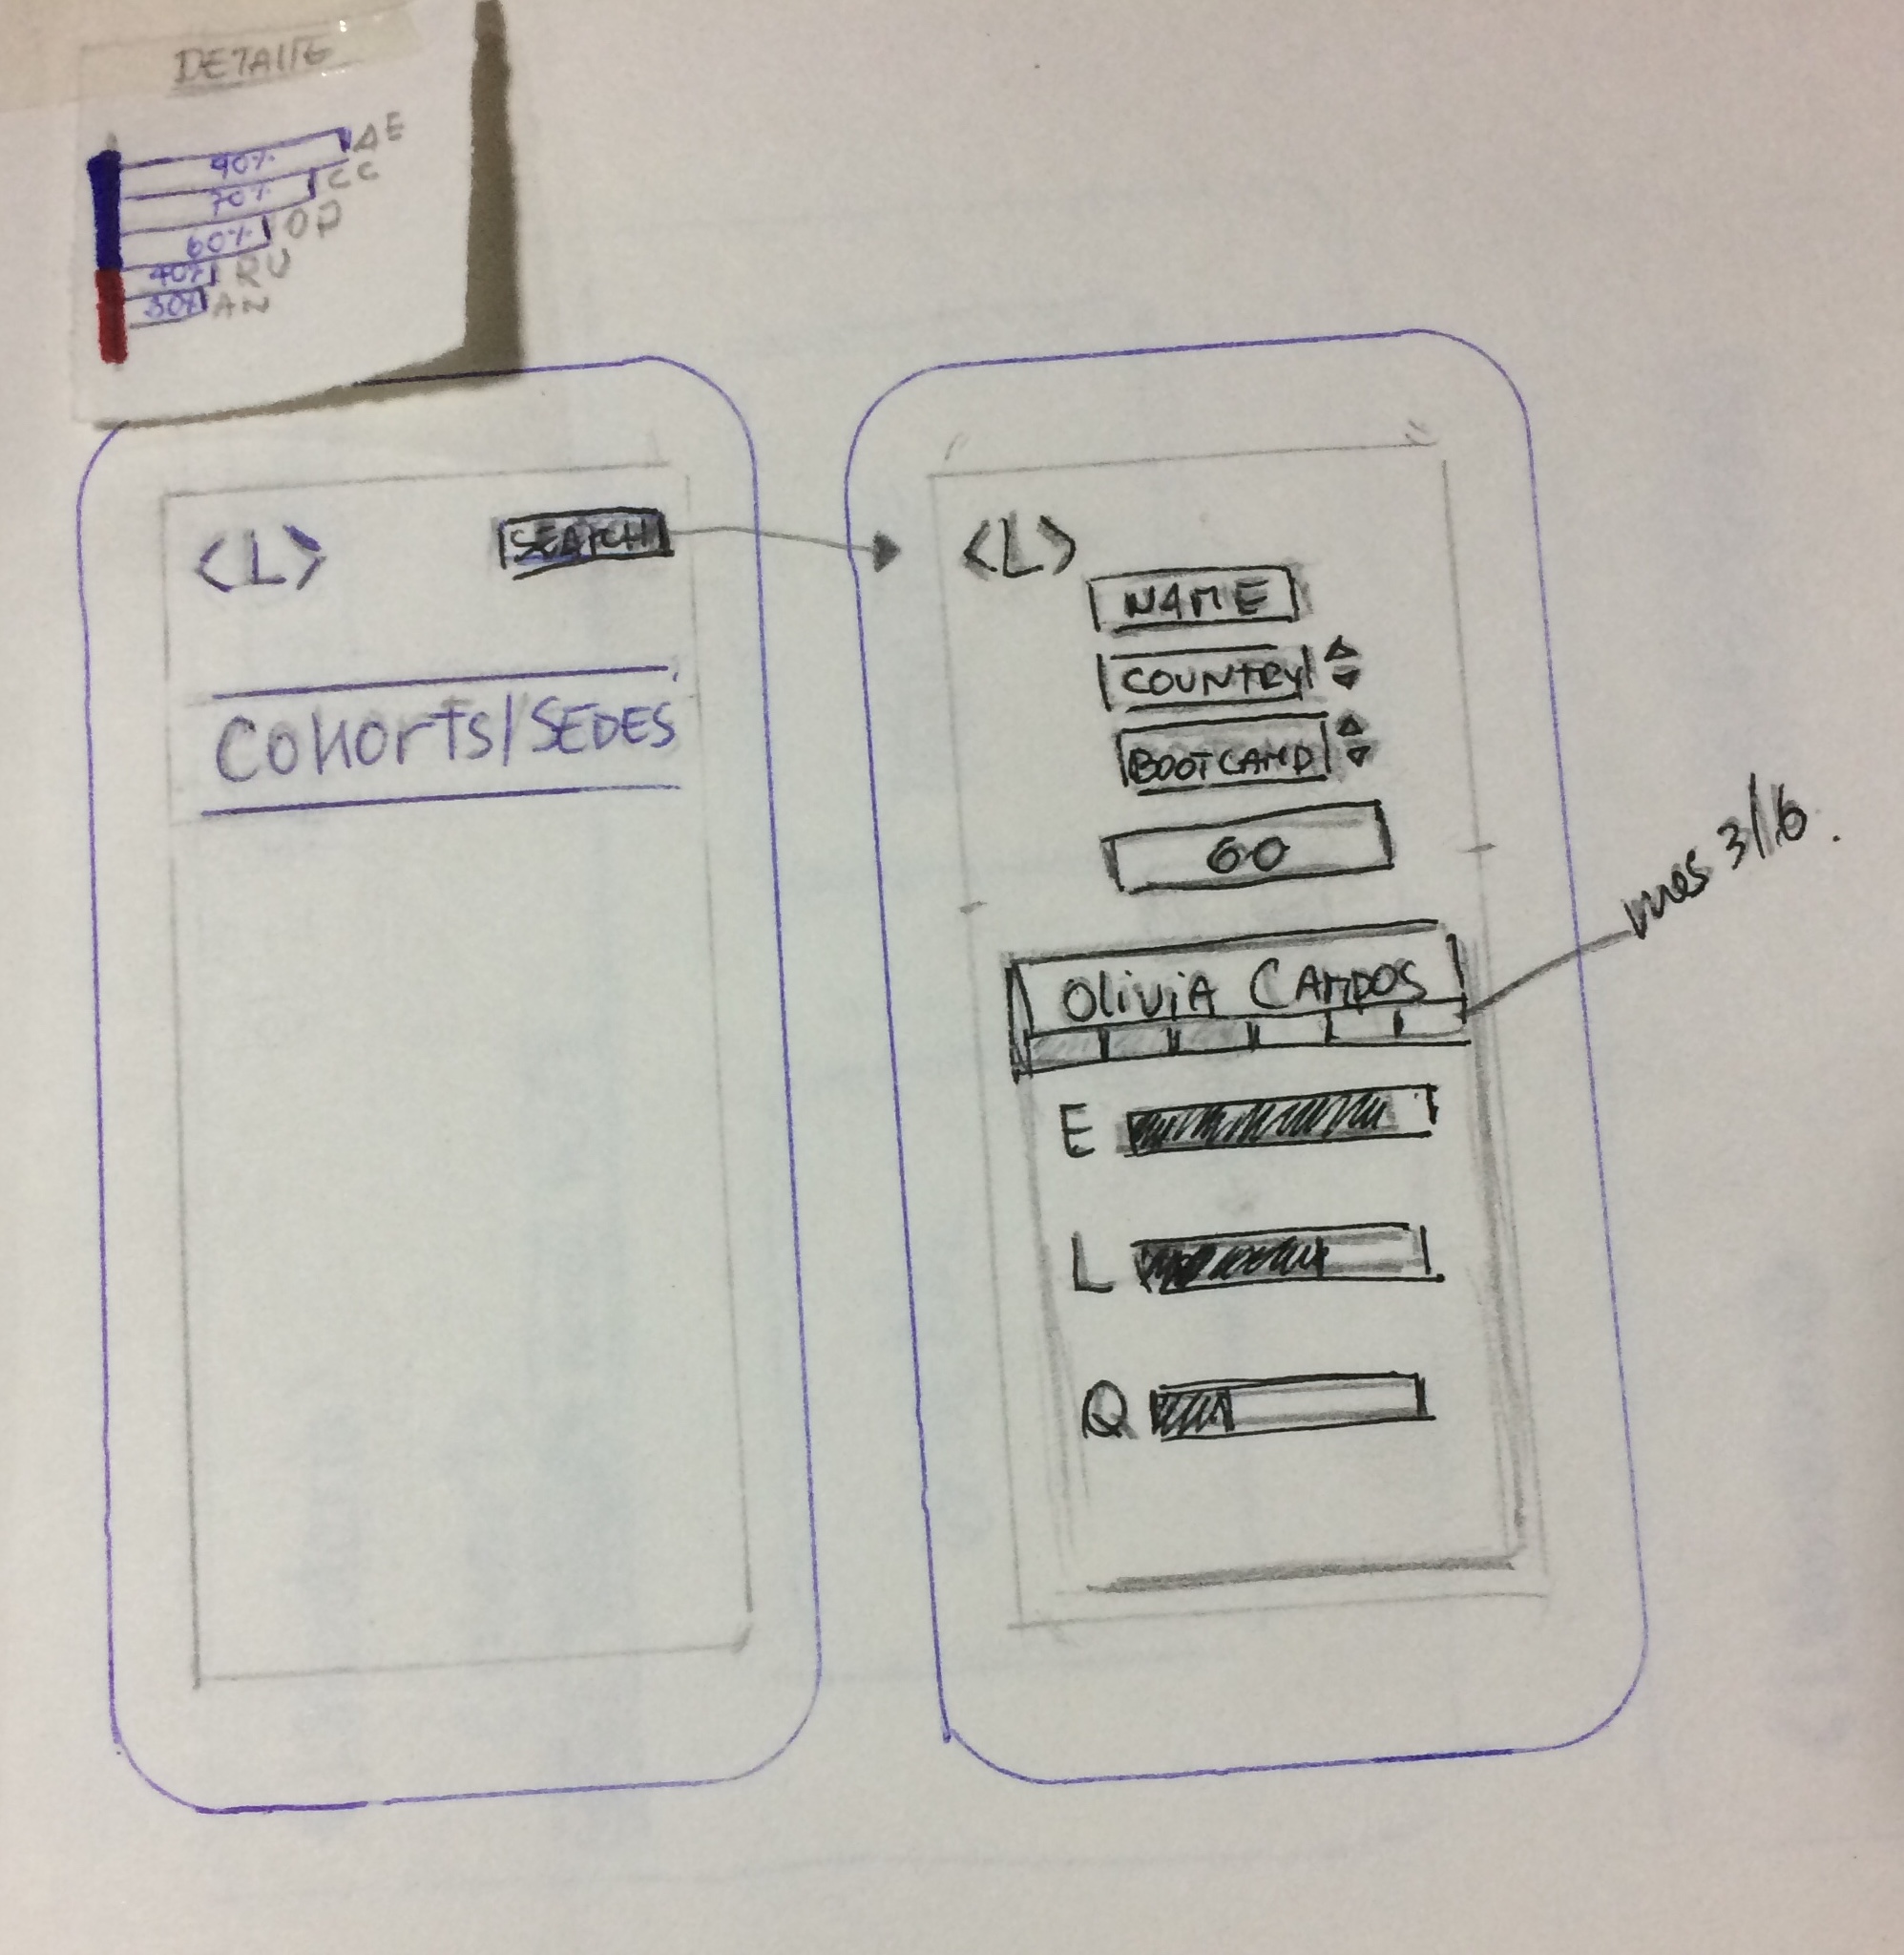 DETAIL6
90% AE
70% CC
60% OP
40% RU
30% AN
<L> SEARCH
Cohorts/SEDES
<L>
NAME
COUNTRY
BOOTCAMP
GO
mes 3/6.
OLiViA CAMPOS
E
L
Q